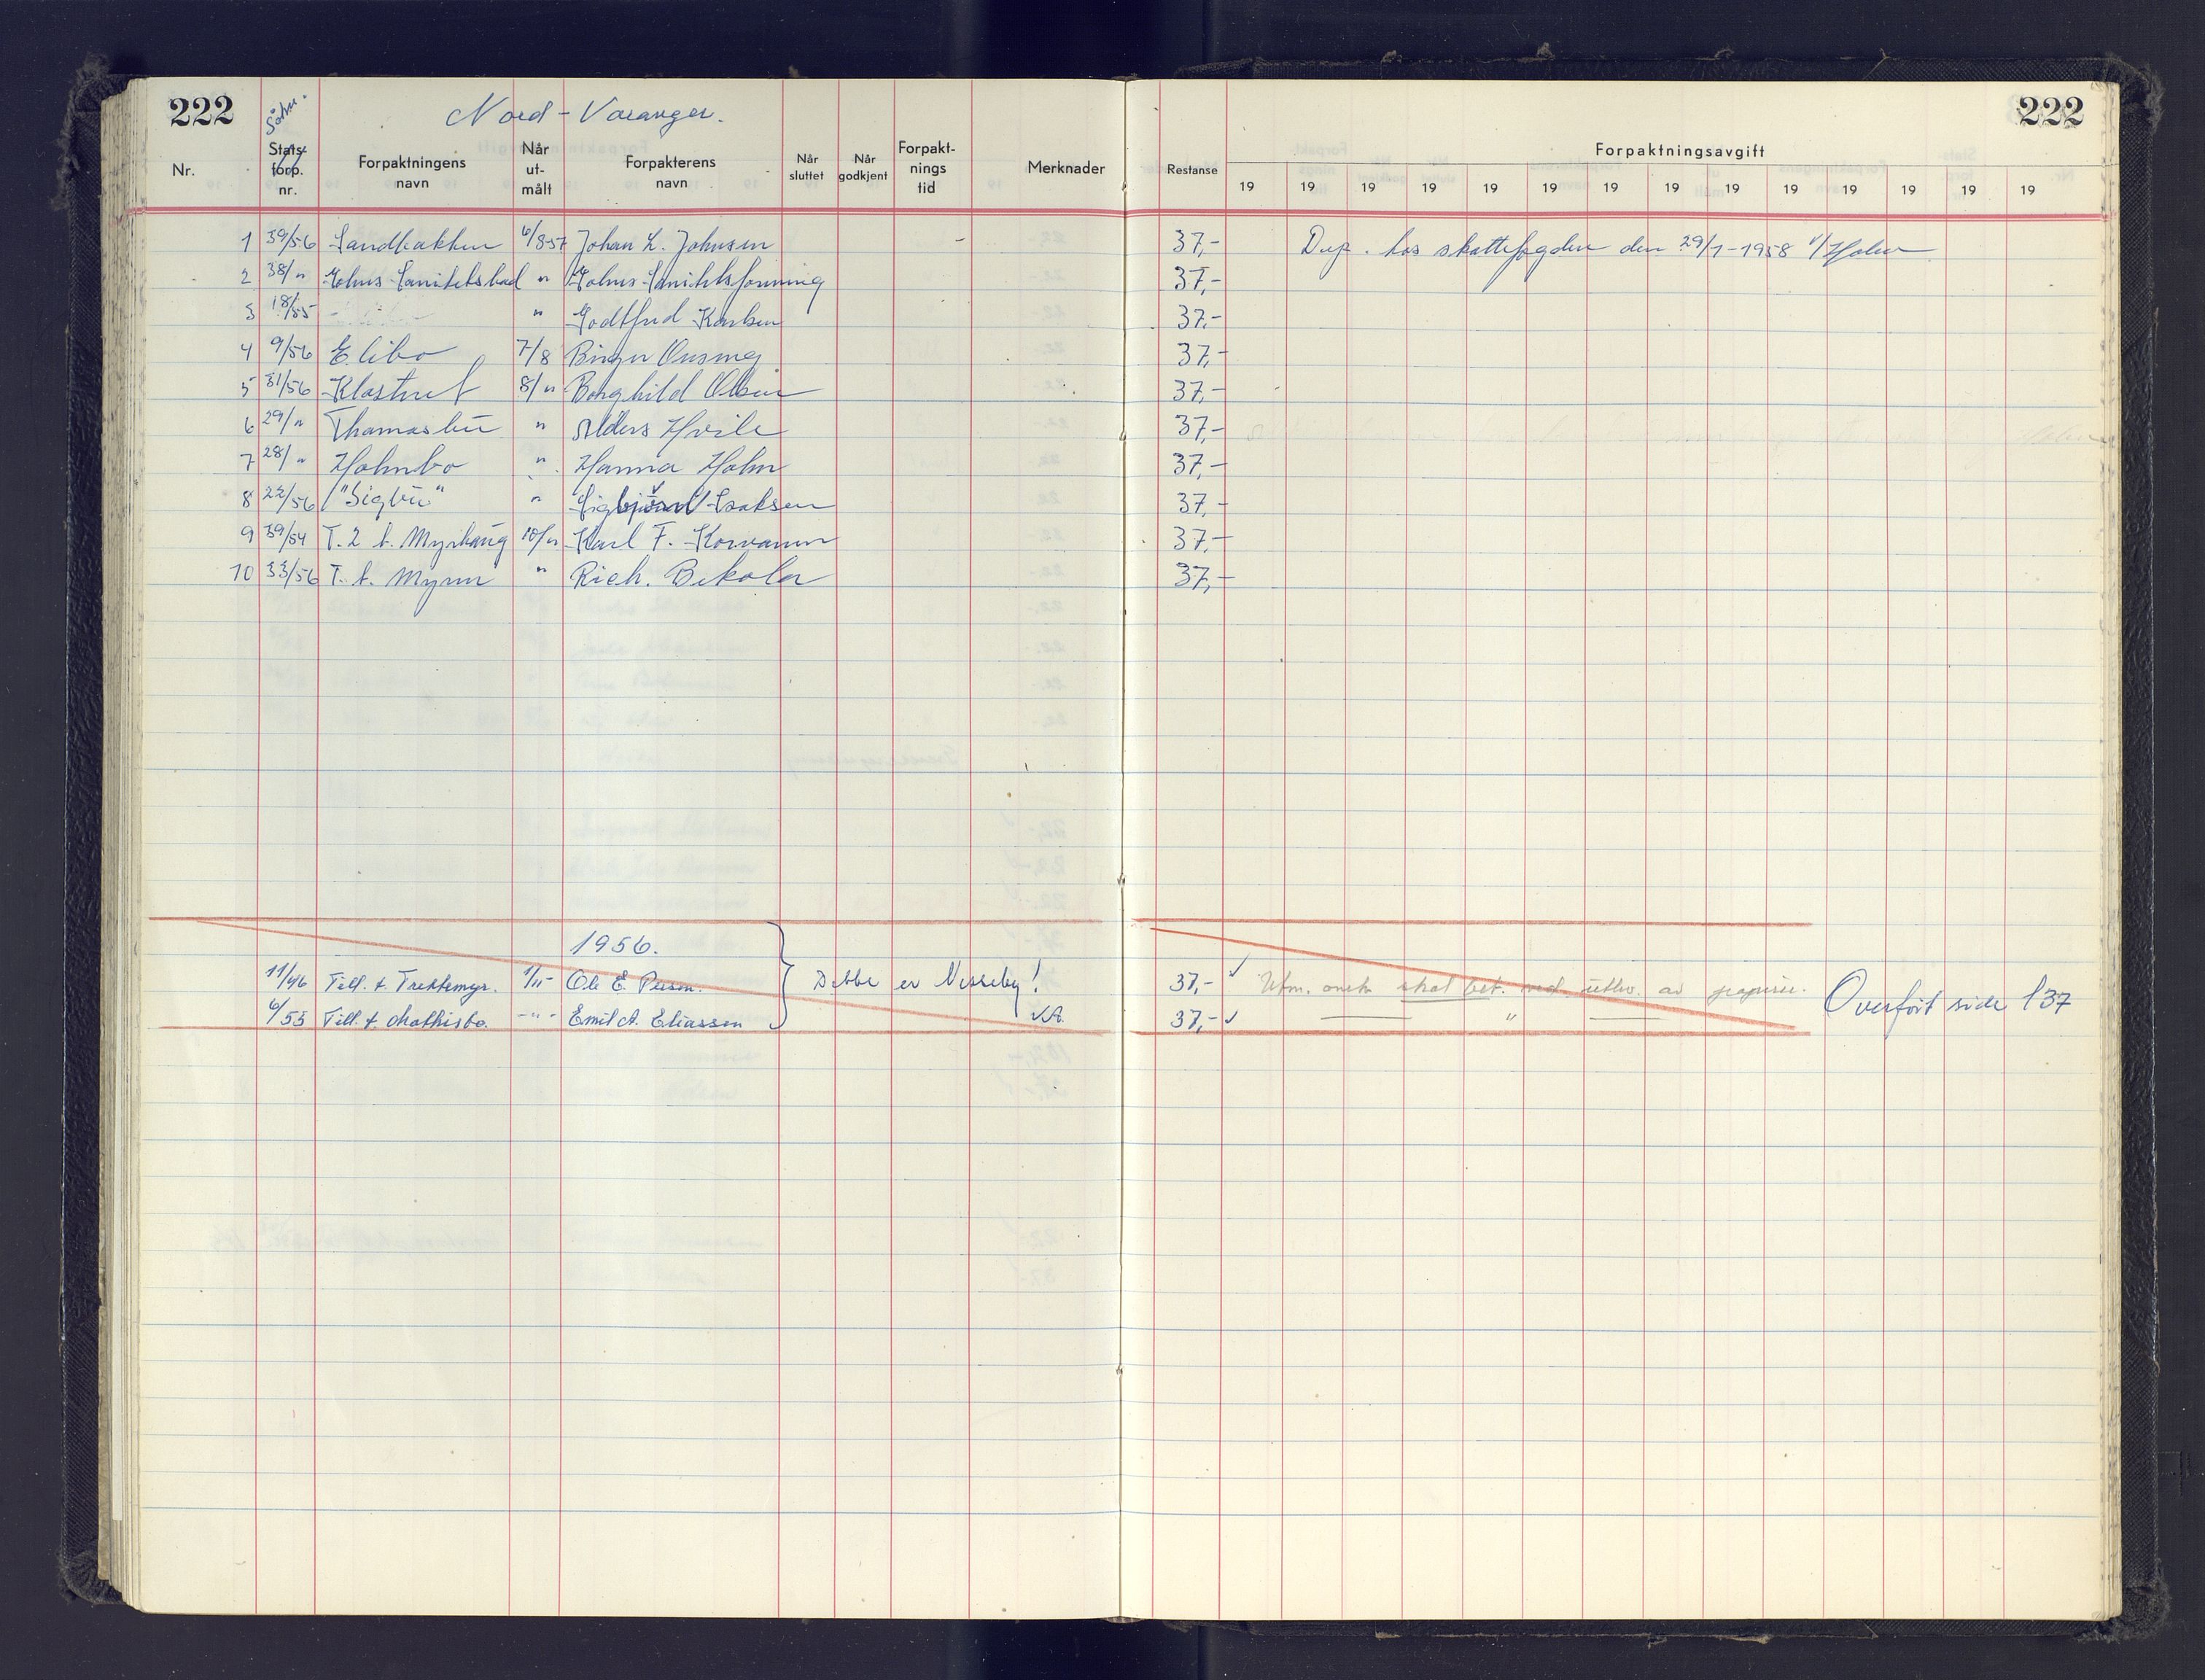 222 Søkn. Nord-Varanger. 222
Nr. Stats- forp. nr. Forpaktningens navn Når ut- målt Forpakterens navn Når sluttet Når godkjent Forpakt- nings tid Merknader Restanse Forpaktningsavgift
19 19 19 19 19 19 19 19 19 19 19 19 19 19
1 39/56 Sandbakken 6/8-57 Johan L. Johnsen 37,- Dep. hos skattefogden den 29/1-1958 v/Holm
2 38/" " 37,-
3 18/55 " Godtfred Karlsen 37,-
4 9/56 Elibo 7/8 Birger 37,-
5 31/56 Klostret 8/" Borghild Olsen 37,-
6 29/" Thomasbu " Alders Hvile 37,-
7 28/" Holmbo " Hanna Holm 37,-
8 22/56 "Sigbu" " Sigbjørn Isaksen 37,-
9 39/54 T. 2 t. Myrhaug 10/" Karl F. 37,-
10 33/56 T. t. Myren " Rich. Bekola 37,-
1956.
11/46 Till. t. Trektemyr. 1/11- Ole E. 37,- ✓ skal bet. ved utlev. av papirer.
6/55 Till. t. Mathisbo. -"- Emil A. Eliassen 37,- ✓ — " —
Dette er Nesseby!
Overført side 137